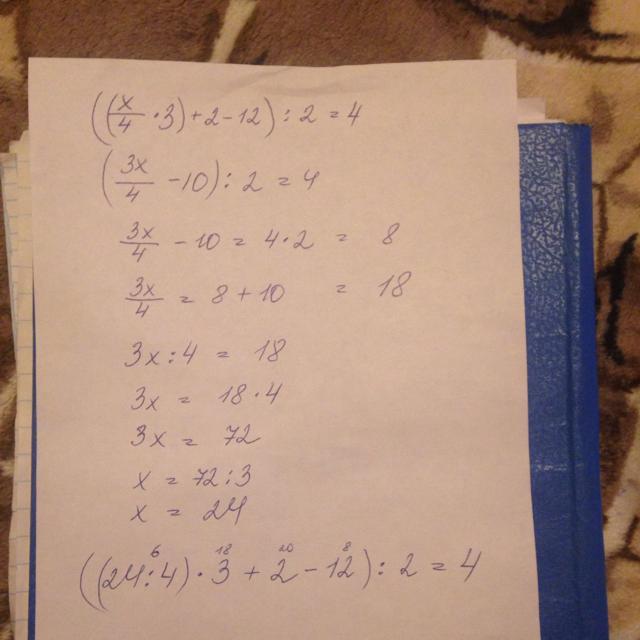 ((x/4 · 3) + 2 - 12) : 2 = 4
(3x/4 - 10) : 2 = 4
3x/4 - 10 = 4 · 2 = 8
3x/4 = 8 + 10 = 18
3x : 4 = 18
3x = 18 · 4
3x = 72
x = 72 : 3
x = 24
6 18 20 8
((24 : 4) · 3 + 2 - 12) : 2 = 4